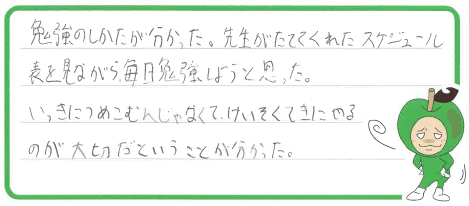 勉強のしかたが分かった。先生がたててくれたスケジュール
表を見ながら、毎日勉強しようと思った。
いっきにつめこむんじゃなくて、けいぞくてきにやる
のが大切だということが分かった。